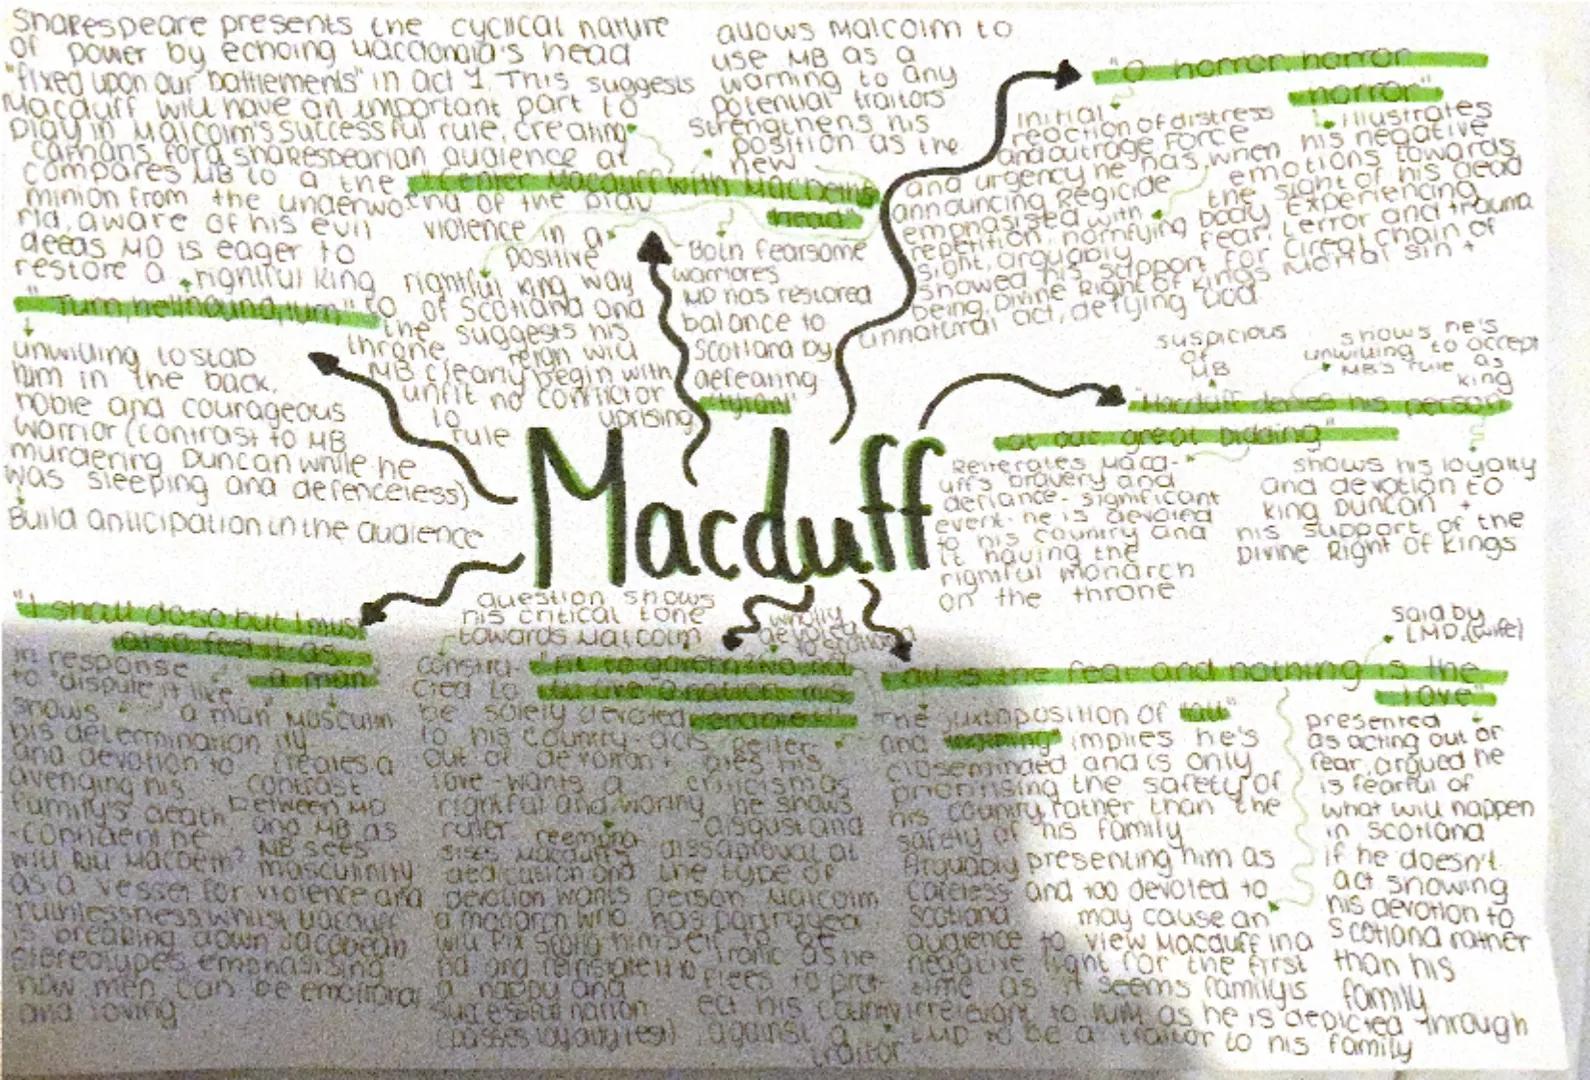 Shakespeare presents the cyclical nature
of power by echoing Macdonald's head
"fixed upon our battlements" in act 1. This suggests
Macduff will have an important part to
play in Malcolm's successful rule, creating
catharsis for a shakespearian audience at
the
end of the play
"Enter Macduff with Macbeth's
head"
allows Malcolm to
use MB as a
warning to any
potential traitors
strengthens his
position as the
new
rightful king
of Scotland and
suggests his
reign will
begin with
no conflict or
uprising
violence in a
positive
way
Both fearsome
warriores
MD has restored
balance to
Scotland by
defeating
"tyrant"
"O horror, horror
horror"
initial
reaction of distress
and outrage, force
and urgency he has, when
announcing regicide
emphasised with
repetition, horrifying
sight, arguably
showed his support for
being, Divine Right of Kings
unnatural act, defying God
illustrates
his negative
emotions towards
the sight of his dead
body experiencing
fear, terror and trauma
chain of
Mortal sin +
compares MB to a
minion from the underwo
rld, aware of his evil
deeds MD is eager to
restore a rightful king
to
the
throne
MB clearly
unfit
to
rule
"Turn, hellhound, turn"
unwilling to stab
him in the back,
noble and courageous
warrior (contrast to MB
murdering Duncan while he
was sleeping and defenceless)
Build anticipation in the audience
suspicious
of
MB
shows he's
unwilling to accept
MB's rule as
king
"Macduff denies his person
at our great bidding"
Reiterates Macd-
uff's bravery and
defiance- significant
event- he is devoted
to his country and
it having the
rightful monarch
on the throne
shows his loyalty
and devotion to
King Duncan +
his support of the
Divine Right of Kings
Macduff
"I shall do so but I must
also feel it as
a man"
in response
to "dispute it like
a man"
shows
his determination
and devotion to
avenging his
family's death
-confident he
will kill Macbeth?
masculin
ity
creates a
contrast
between MD
and MB as
MB sees
masculinity
as a vessel for violence and
ruthlessness whilst Macduff
is breaking down Jacobean
stereotypes emphasising
how men can be emotional
and loving
question shows
his critical tone
towards Malcolm
wholly
devoted
to Scotland
"Fit to govern? No not
to live. O nation mis
erable!!"
be solely devoted
to his country-acts
out of devotion +
love-wants a
rightful and worthy
ruler
reempha
sises Macduff's
dedication and
devotion wants
a monarch who
will fix Scotla
nd and reinstate it to
a happy and
successful nation
(passes loyalty test)
Reiter-
ates his
criticism as
he shows
disgust and
dissaproval at
the type of
person Malcolm
has portrayed
himself to be
ironic as he
flees to prot-
ect his country
against a
traitor
said by
LMD (wife)
"all is the fear and nothing is the
love"
The juxtaposition of "all"
and "nothing" implies he's
closeminded and is only
prioritising the safety of
his country rather than the
safety of his family
Arguably presenting him as
careless and too devoted to
Scotland
may cause an
audience to view Macduff in a
negative light for the first
time as it seems family is
irrelevant to him as he is depicted through
LMD to be a traitor to his family
presented
as acting out of
fear, argued he
is fearful of
what will happen
in Scotland
if he doesn't
act showing
his devotion to
Scotland rather
than his
family